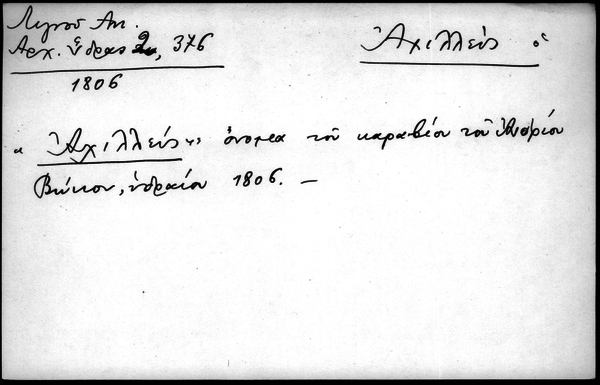 Λιγνοῦ Ἀν.
Ἀρχ. Ὕδρας 2, 376
1806
Ἀχιλλεύς ὁ
« Ἀχιλλεύς » ὄνομα τοῦ καραβίου τοῦ
Βώκου, ὑδραίου 1806. –